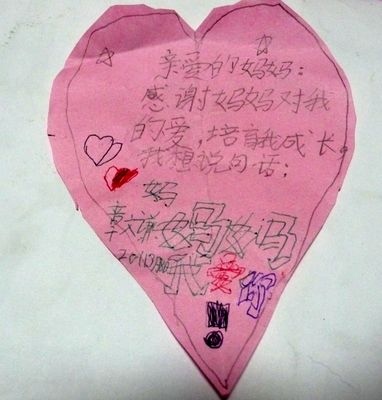 亲爱的妈妈:
感谢妈妈对我
的爱,培育我成长。
我想说句话:
妈
妈妈
我爱你
!